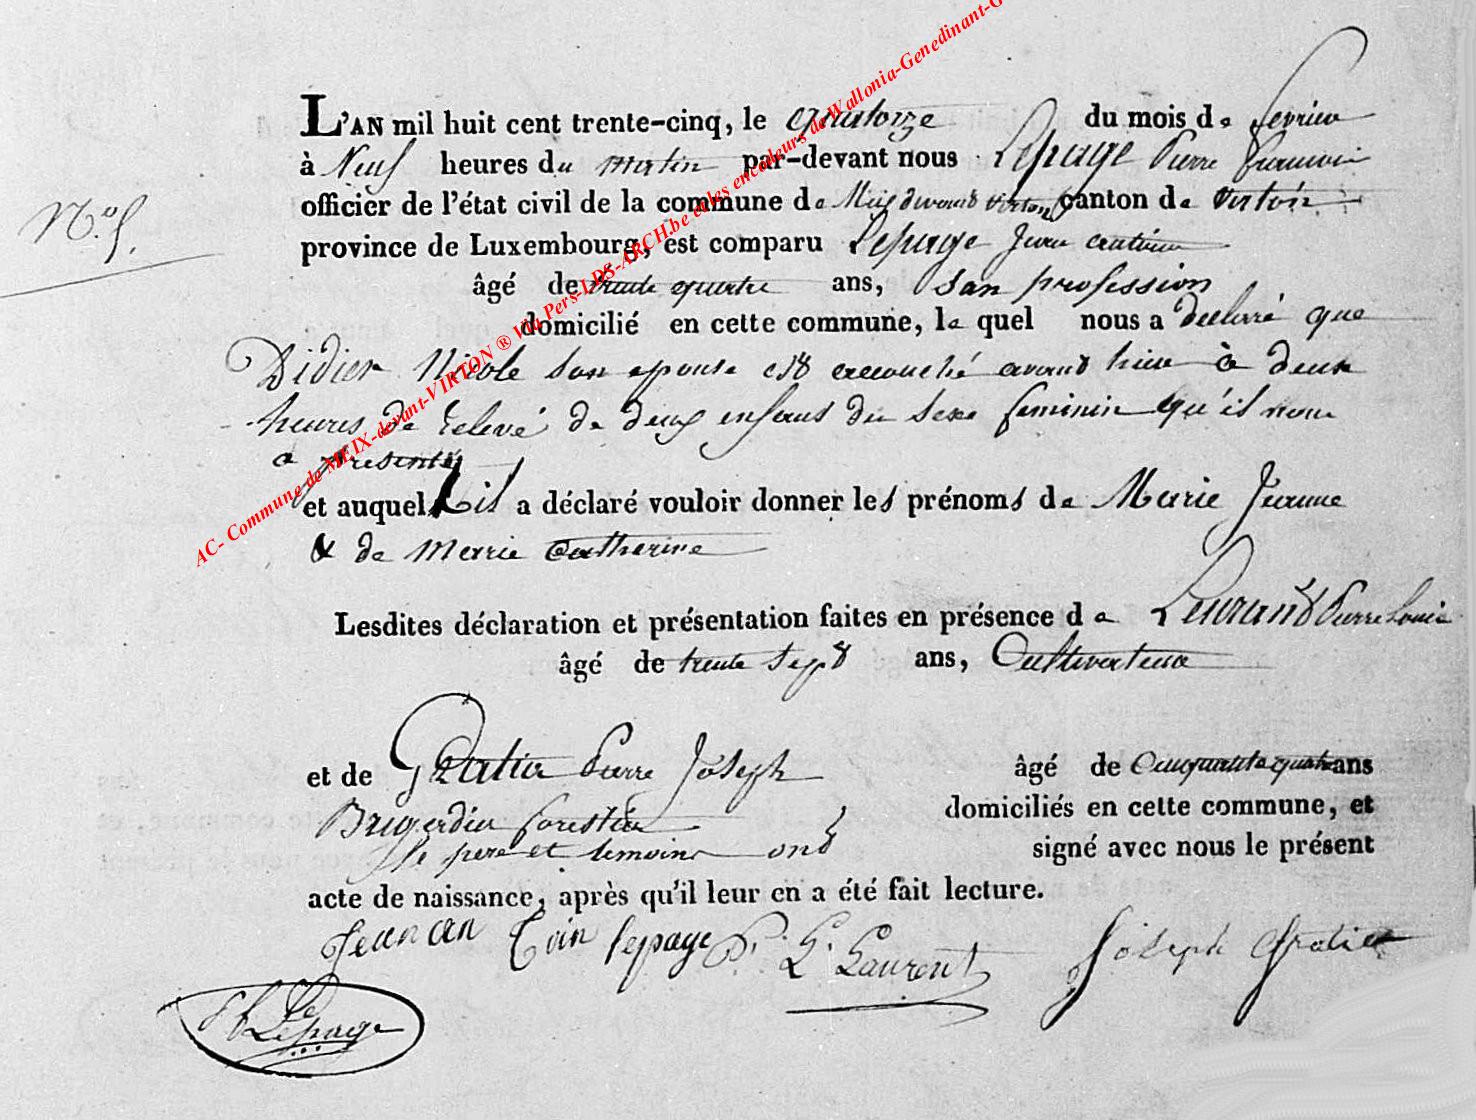 AC- Commune de MEIX-devant-VIRTON ® Via Pers-LDS-ARCH.be et les encodeurs de Wallonia-Genedinant-G
L'AN mil huit cent trente-cinq, le quatorze du mois de fevrier
à Neuf heures du matin par-devant nous Lepage Pierre francois
officier de l'état civil de la commune de Meix devant virton canton de virton
N.º 5.
province de Luxembourg, est comparu Lepage Jean antoine
âgé de trente quatre ans, san profession
domicilié en cette commune, le quel nous a declaré que
Didier Nicole son epouse est accouché avant hier à deux
heures de relevé de deux enfans du sexe feminin qu'il nous
a presenté
et auquels il a déclaré vouloir donner les prénoms de Marie Jeanne
& de Marie Catherine
Lesdites déclaration et présentation faites en présence de Laurent Pierre Louis
âgé de trente sept ans, Cultivateur
et de Gratia Pierre Joseph âgé de Cinquante quatre ans
Brigadier forestier domiciliés en cette commune, et
le pere et temoins ont signé avec nous le présent
acte de naissance, après qu'il leur en a été fait lecture.
Jean an toin lepage P. L. Laurent Joseph Gratia
Lepage